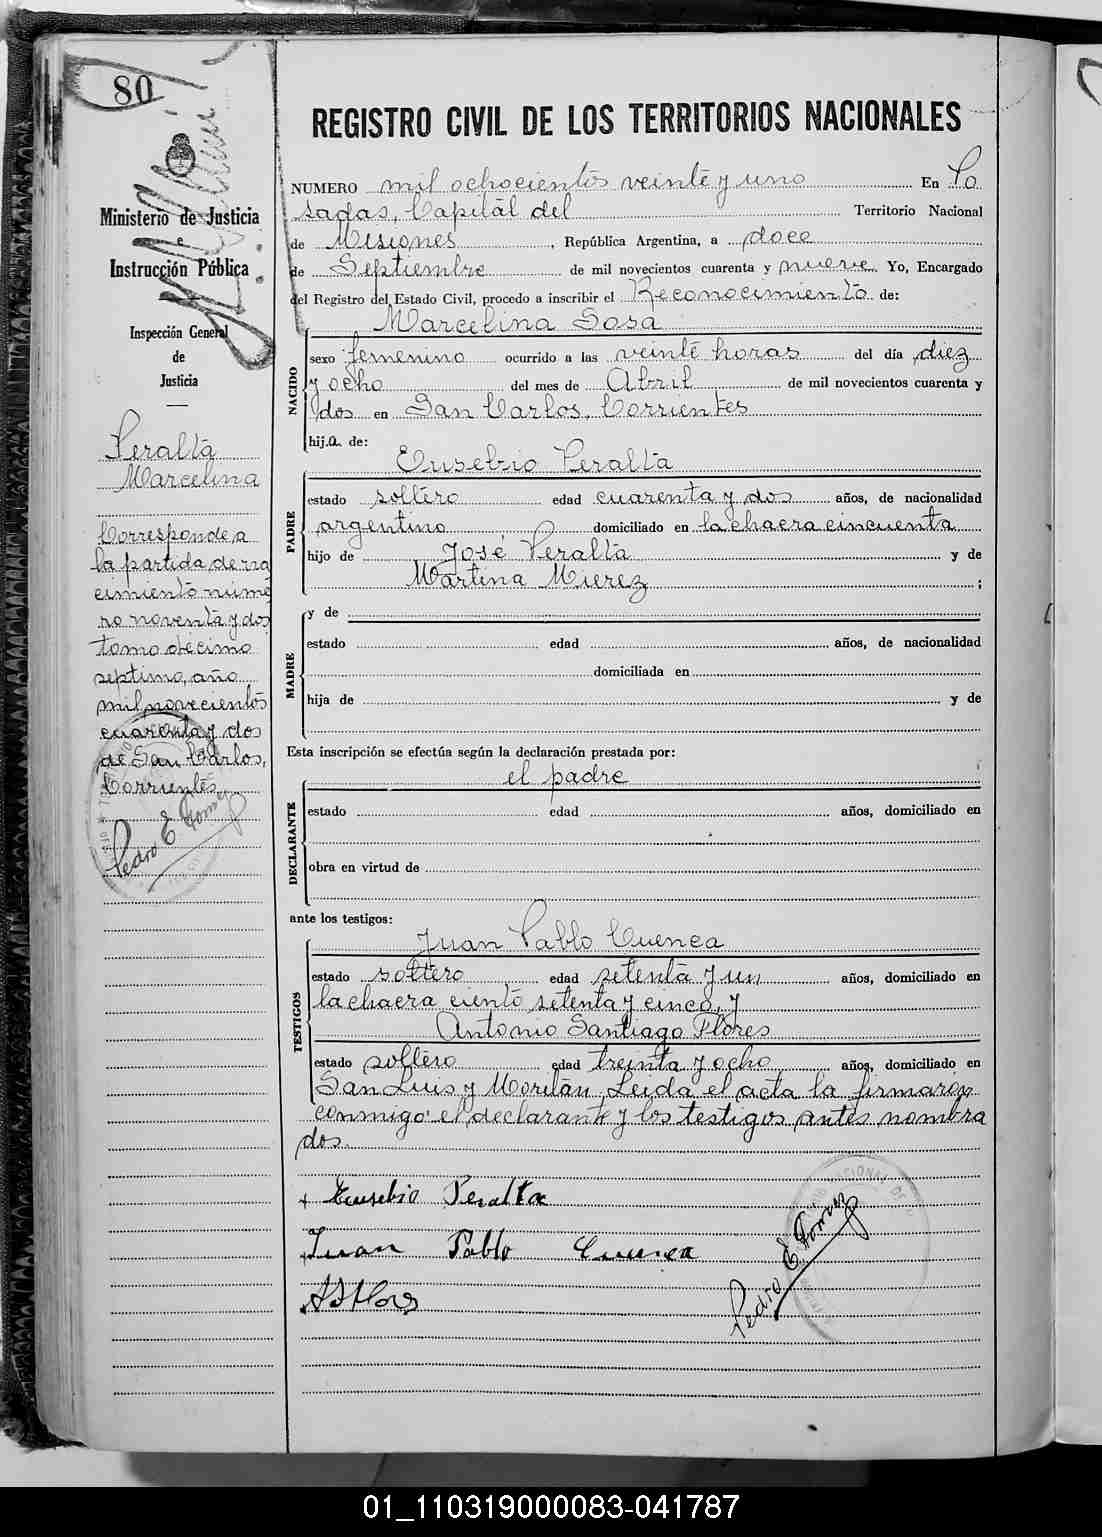 80
Ministerio de Justicia
e
Instrucción Pública
Inspección General
de
Justicia
Peralta
Marcelina
Corresponde a
la partida de na
cimiento núme
ro noventa y dos
tomo décimo
septimo, año
mil novecientos
cuarenta y dos
de San Carlos,
Corrientes
Pedro E Gomez
REGISTRO CIVIL DE LOS TERRITORIOS NACIONALES
NUMERO mil ochocientos veinte y uno En Po
sadas, Capital del Territorio Nacional
de Misiones, República Argentina, a doce
de Septiembre de mil novecientos cuarenta y nueve Yo, Encargado
del Registro del Estado Civil, procedo a inscribir el Reconocimiento de:
Marcelina Sosa
NACIDO
sexo femenino ocurrido a las veinte horas del día diez
y ocho del mes de Abril de mil novecientos cuarenta y
dos en San Carlos, Corrientes
hija de:
Eusebio Peralta
PADRE
estado soltero edad cuarenta y dos años, de nacionalidad
argentino domiciliado en la chacra cincuenta
hijo de José Peralta y de
Martina Mierez ;
MADRE
y de
estado edad años, de nacionalidad
domiciliada en
hija de y de
Esta inscripción se efectúa según la declaración prestada por:
el padre
DECLARANTE
estado edad años, domiciliado en
obra en virtud de
ante los testigos:
Juan Pablo Cuenca
TESTIGOS
estado soltero edad setenta y un años, domiciliado en
la chacra ciento setenta y cinco, y
Antonio Santiago Flores
estado soltero edad treinta y ocho años, domiciliado en
San Luis y Morilán. Leida el acta la firmaron
conmigo el declarante y los testigos antes nombra
dos.
Eusebio Peralta
Juan Pablo Cuenca
Pedro E Gomez
01_110319000083-041787